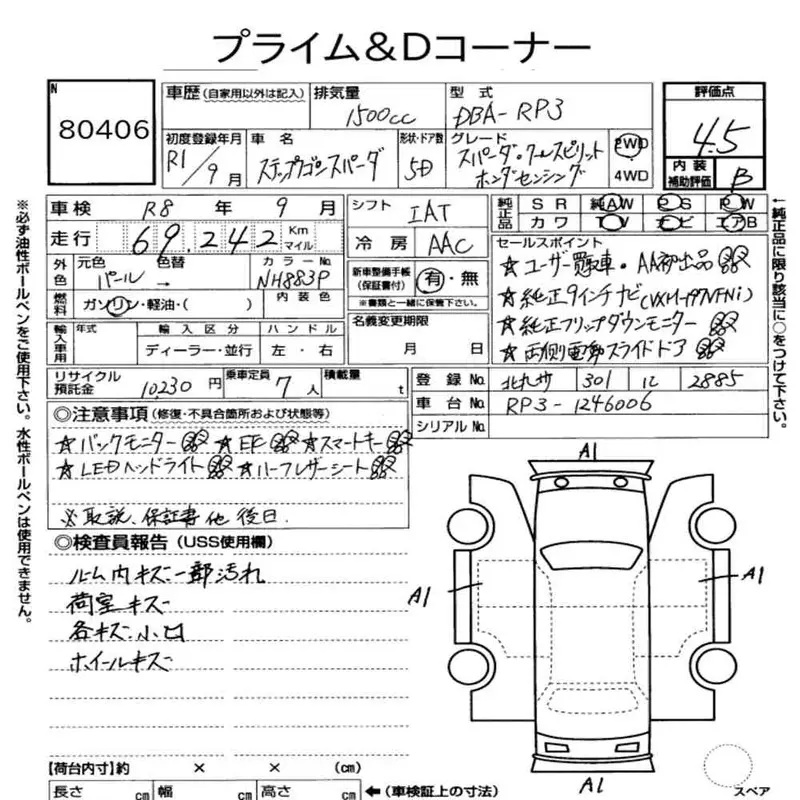 プライム&Dコーナー
N
80406
車歴 (自家用以外は記入)
排気量
1500cc
型式
DBA-RP3
評価点
4.5
初度登録年月
R1/9月
車名
ステップワゴンスパーダ
形状・ドア数
5D
グレード
スパーダ・クールスピリット
ホンダセンシング
2WD
4WD
内装
補助評価
B
車検 R8年 9月
シフト
IAT
純正品
SR 純AW PS PW
カワ TV ナビ エアB
走行 69,242 Km
マイル
冷房
AAC
外色
元色
パール
色替
→
カラーNo
NH883P
燃料
ガソリン・軽油・( )
内装色
新車整備手帳
(保証書付)
有・無
※書類と一緒に保管下さい。
セールスポイント
☆ユーザー買取車・AA初出品
☆純正9インチナビ(VXM-197VFNi)
☆純正フリップダウンモニター
☆両側電動スライドドア
輸入車用
年式
輸入区分
ディーラー・並行
ハンドル
左・右
名義変更期限
月 日
リサイクル
預託金
10,230円
乗車定員
7人
積載量
t
登録No.
北九州 301 2885
車台No.
RP3-1246006
シリアルNo.
◎注意事項 (修復・不具合箇所および状態等)
☆バックモニター ☆ETC ☆スマートキー
☆LEDヘッドライト ☆ハーフレザーシート
※取説、保証書 他 後日.
◎検査員報告 (USS使用欄)
ルーム内キズ 一部汚れ
荷室キズ
各キズ.小凹
ホイールキズ
A1
A1
A1
A1
スペア
【荷台内寸】約 × × (cm)
長さ cm 幅 cm 高さ cm ←(車検証上の寸法)
※必ず油性ボールペンをご使用下さい。水性ボールペンは使用できません。
←純正品に限り該当に○をつけて下さい。